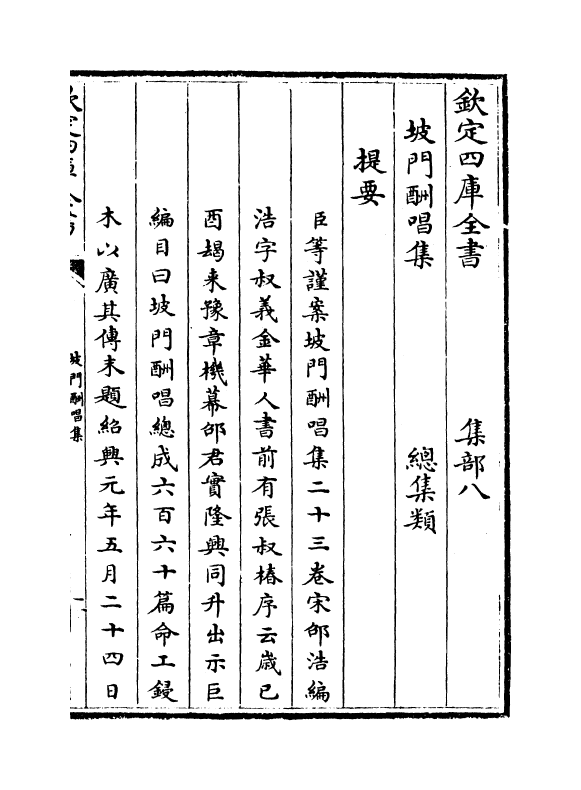 欽定四庫全書　集部八
坡門酬唱集　總集類
提要
臣等謹案坡門酬唱集二十三卷宋邵浩編
浩字叔義金華人書前有張叔椿序云歲己
酉朅来豫章機幕邵君實隆興同升出示巨
編目曰坡門酬唱總成六百六十篇命工鋟
木以廣其傳末題紹興元年五月二十四日
欽定四庫全書
坡門酬唱集